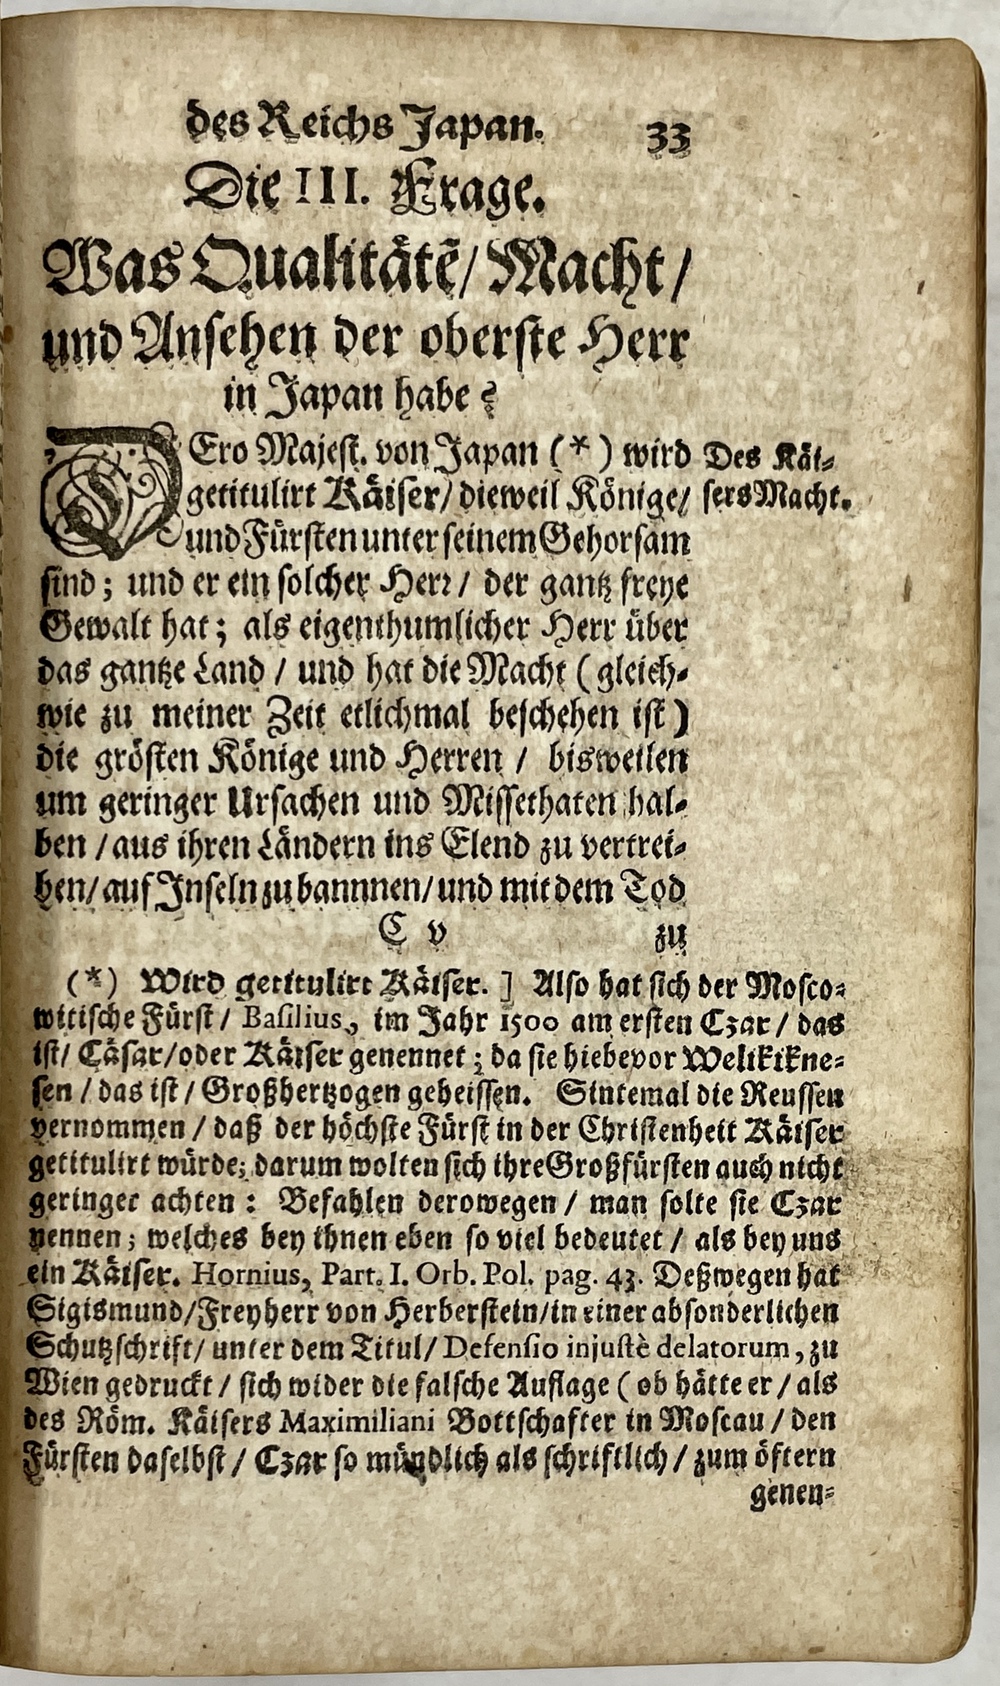 des Reichs Japan. 33
Die III. Frage.
Was Qualitätẽ/ Macht/
und Ansehen der oberste Herr
in Japan habe?
DEro Majest. von Japan (*) wird
getitulirt Käiser/ dieweil Könige/
und Fürsten unter seinem Gehorsam
sind; und er ein solcher Herr/ der gantz freye
Gewalt hat; als eigenthumlicher Herr über
das gantze Land / und hat die Macht (gleich-
wie zu meiner Zeit etlichmal beschehen ist)
die grösten Könige und Herren / bisweilen
um geringer Ursachen und Missethaten hal-
ben / aus ihren Ländern ins Elend zu vertrei-
ben/ auf Inseln zu bannnen/ und mit dem Tod
C v zu
Des Käi-
sers Macht.
(*) Wird getitulirt Käiser. ] Also hat sich der Mosco-
witische Fürst/ Basilius, im Jahr 1500 am ersten Czar / das
ist/ Cäsar/ oder Käiser genennet; da sie hiebevor Welikikne-
sen / das ist / Großhertzogen geheissen. Sintemal die Reussen
vernommen / daß der höchste Fürst in der Christenheit Käiser
getitulirt würde; darum wolten sich ihre Großfürsten auch nicht
geringer achten: Befahlen derowegen / man solte sie Czar
nennen; welches bey ihnen eben so viel bedeutet / als bey uns
ein Käiser. Hornius, Part. I. Orb. Pol. pag. 43. Deßwegen hat
Sigismund/ Freyherr von Herberstein/ in einer absonderlichen
Schutzschrift/ unter dem Titul/ Defensio injustè delatorum, zu
Wien gedruckt / sich wider die falsche Auflage (ob hätte er / als
des Röm. Käisers Maximiliani Bottschafter in Moscau / den
Fürsten daselbst / Czar so mündlich als schriftlich / zum öftern
genen-